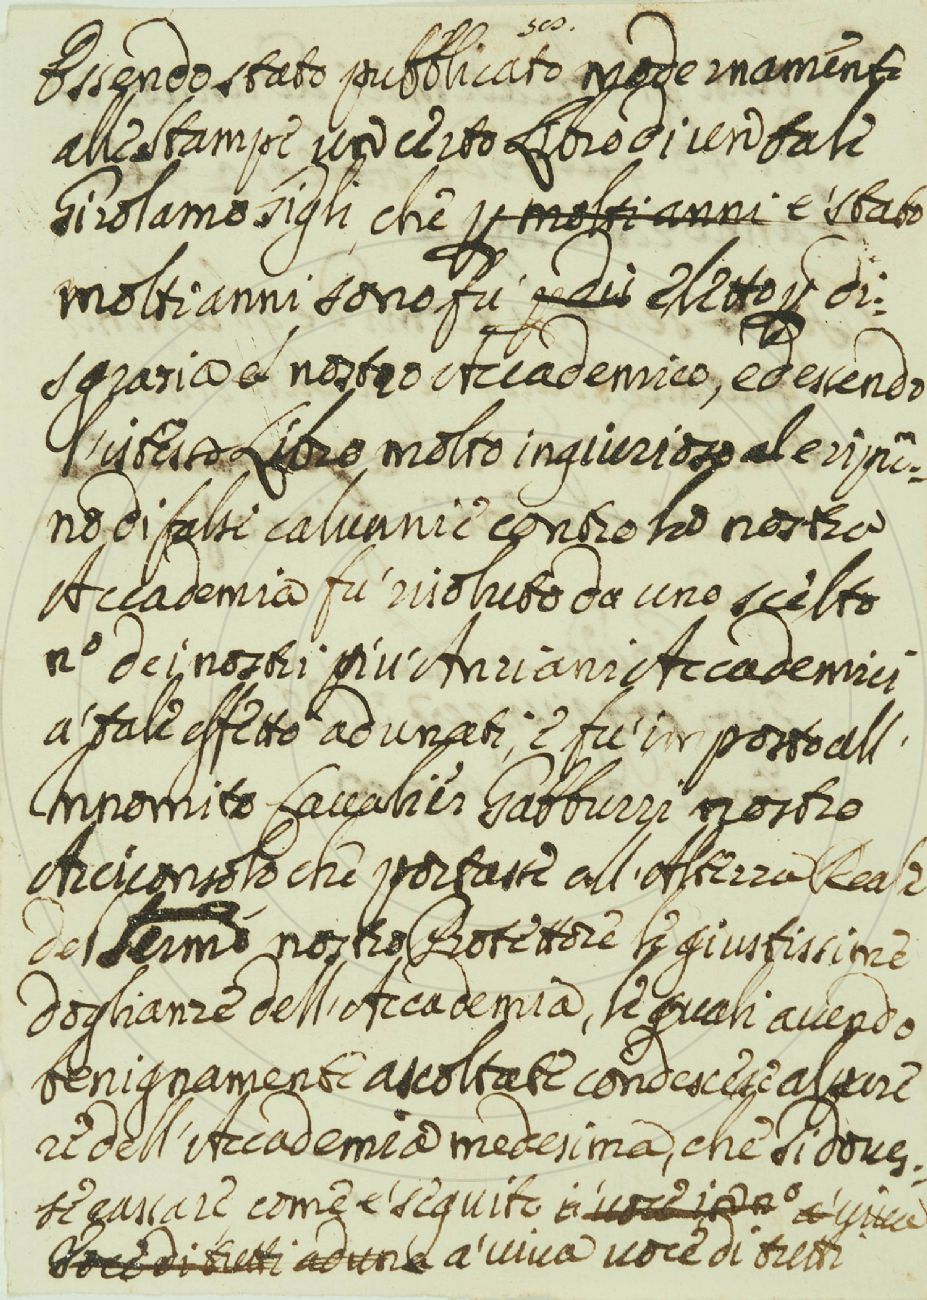 Essendo stato pubblicato modernamente
alle stampe un certo Libro di un tale
Girolamo Gigli, che p molti anni è stato
molti anni sono fù eletto p di=
sgrazia nostro Accademico, ed essendo
l'istesso Libro molto ingiurioso e ripie=
no di falsi calunnie contro la nostra
Accademia fù risoluto da uno scelto
n.º dei nostri più Anziani Accademici
a' tale effetto adunati, e fù imposto all'
Innomito Cavalier Gabburri nostro
Arciconsolo che portasse all'Altezza Reale
del Sermo nostro Protettore le giustissime
doglianze dell'Accademia, le quali avendo
benignamente ascoltate condescese al pare
re dell'Accademia medesima, che si doves=
se cassare come è seguito voce in n.º a' viva
voce di tutti aduna a' viva voce di tutti